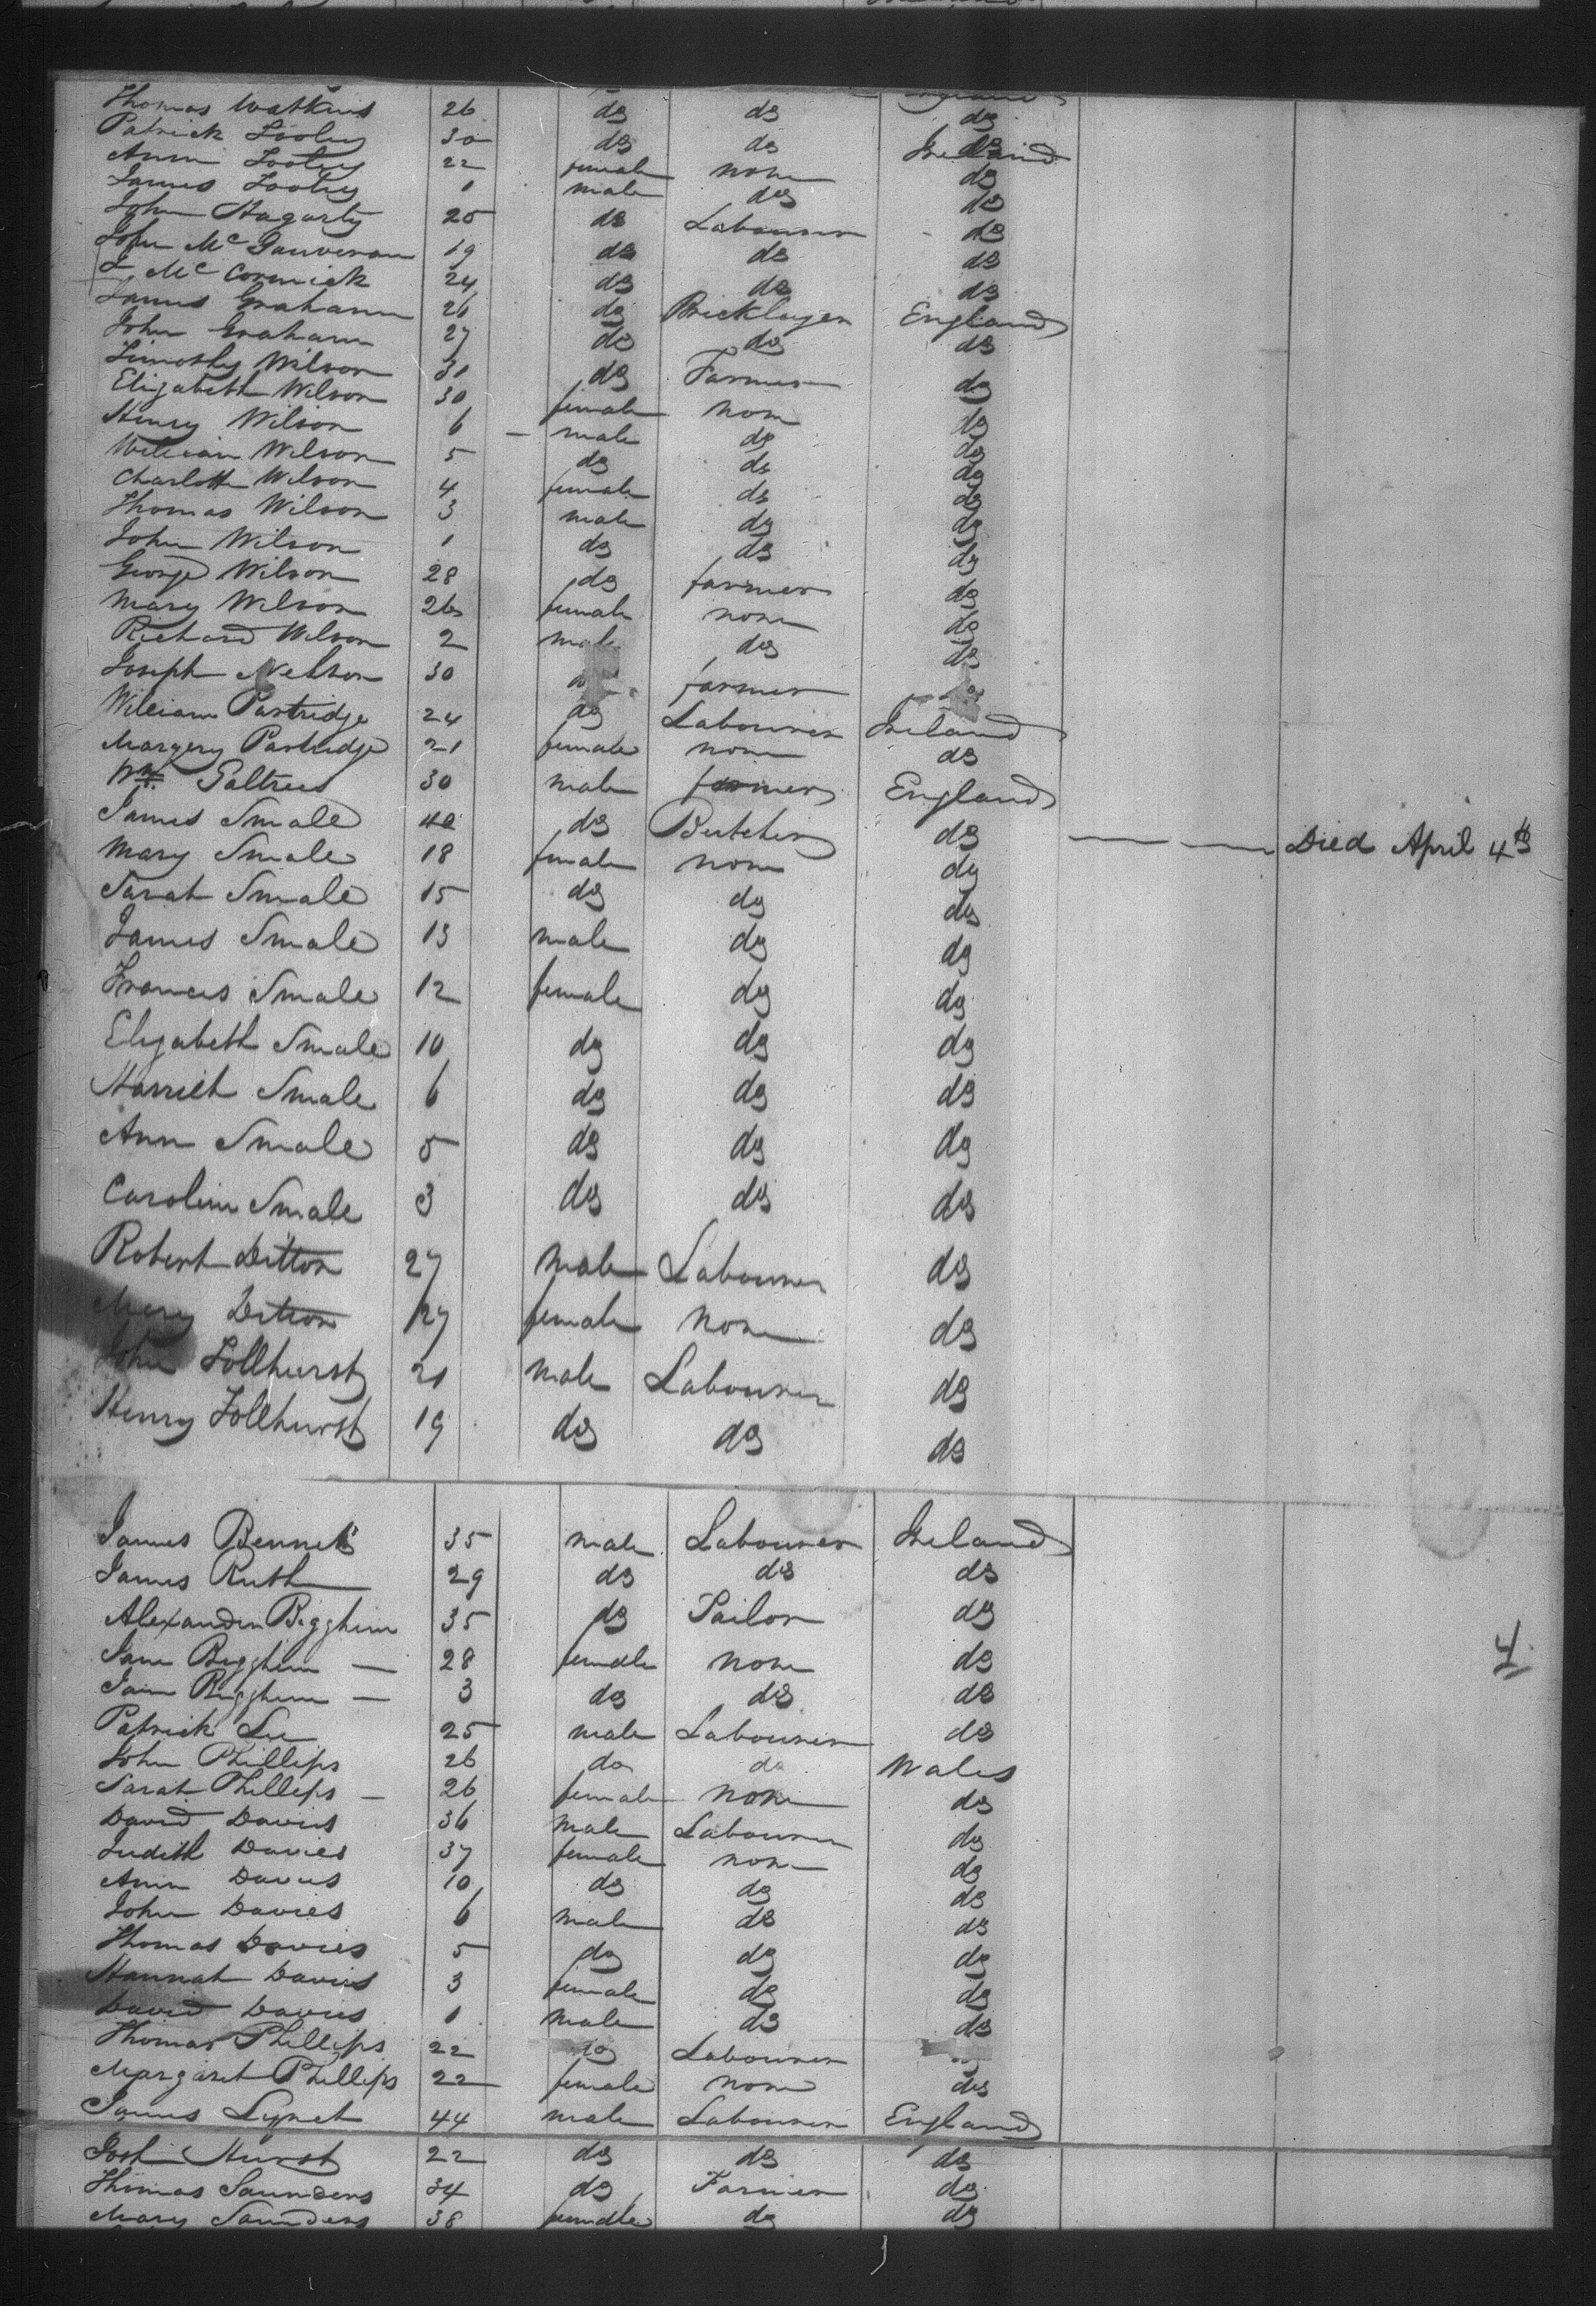 Thomas Watkins 26 do do do
Patrick Tooley 30 do do Ireland
Ann Tooley 22 female none do
James Tooley 1 male do do
John Hagarty 25 do Labourer do
John McGauveran 19 do do do
L McCormick 24 do do do
James Graham 26 do Bricklayer England
John Graham 27 do do do
Timothy Wilson 31 do Farmer do
Elizabeth Wilson 30 female none do
Henry Wilson 6 male do do
William Wilson 5 do do do
Charlotte Wilson 4 female do do
Thomas Wilson 3 male do do
John Wilson 1 do do do
George Wilson 28 do farmer do
Mary Wilson 26 female none do
Richard Wilson 2 male do do
Joseph Nelson 30 farmer
William Partridge 24 do Labourer Ireland
Margery Partridge 21 female none do
Wm. Galtrees 30 male farmer England
James Smale 40 do Butcher do Died April 4th
Mary Smale 18 female none do
Sarah Smale 15 do do do
James Smale 13 male do do
Frances Smale 12 female do do
Elizabeth Smale 10 do do do
Harriet Smale 6 do do do
Ann Smale 5 do do do
Caroline Smale 3 do do do
Robert Ditton 27 male Labourer do
Mary Ditton 27 female none do
John Tollhurst 21 male Labourer do
Henry Tollhurst 19 do do do
James Bennett 35 male Labourer Ireland
James Ruth 29 do do do
Alexander Bigghim 35 do Sailor do
Jane Bigghim 28 female none do
Jane Bigghim 3 do do do
Patrick Lee 25 male Labourer do
John Phillips 26 do do Wales
Sarah Phillips 26 female none do
David Davies 36 male Labourer do
Judith Davies 37 female none do
Ann Davies 10 do do do
John Davies 6 male do do
Thomas Davies 5 do do do
Hannah Davies 3 female do do
David Davies 1 male do do
Thomas Phillips 22 do Labourer
Margaret Phillips 22 female none do
James Lynch 44 male Labourer England
Josh Hurst 22 do do do
Thomas Saunders 34 do Farmer do
Mary Saunders 38 female do do